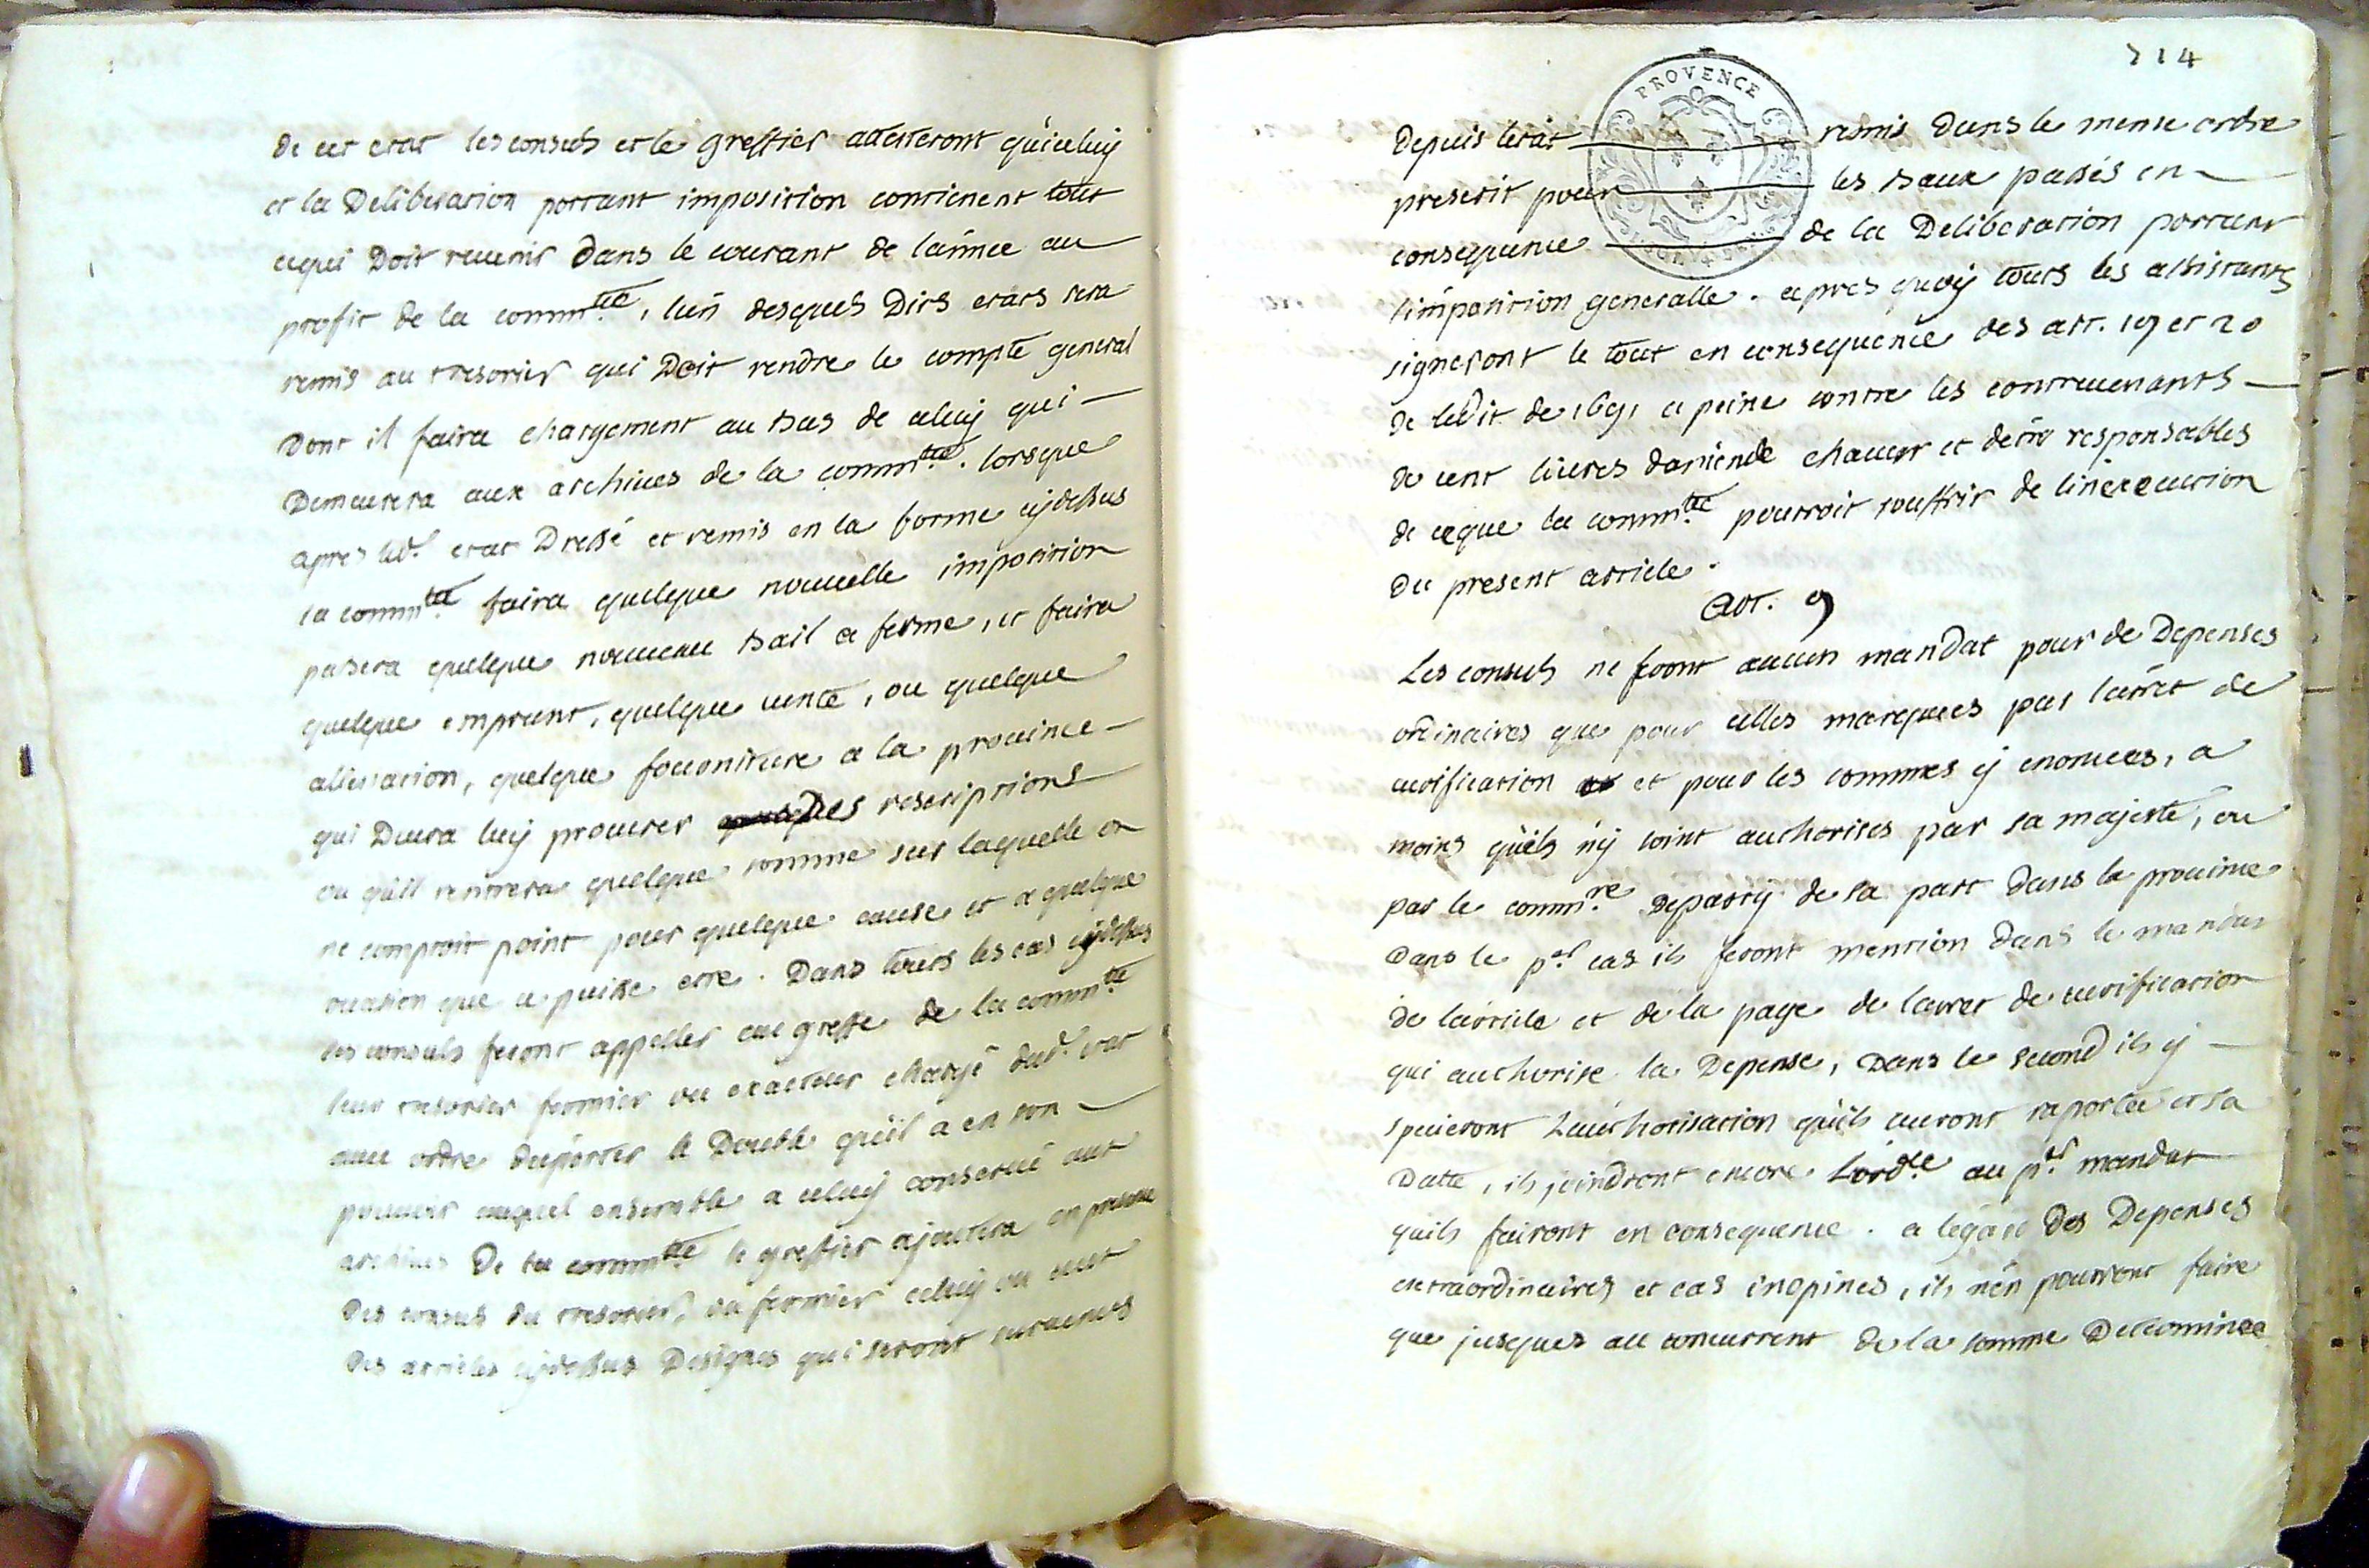 de cet etat les consuls et le greffier attesteront qu'iceluy
et la Deliberation portant imposition contienent tout
cequi Doit revenir dans le courant de l'année au
profit de la comm.té, l'un desquels Dits etats sera
remis au tresorier qui Doit rendre le compte general
Dont il faira chargement au bas de celuy qui
Demeurera aux archives de la comm.té. lorsque
apres led.t etat Dressé et remis en la forme cydessus
la comm.té faira quelque nouvelle imposition
passera quelque nouveau bail a ferme, et faira
quelque emprunt, quelque vente, ou quelque
alienation, quelque fourniture a la province
qui Devra luy procurer rescriptions
ou qu'il rentrera quelque somme sur laquelle on
ne comptoit point pour quelque cause et a quelque
occasion que ce puisse etre. Dans touts les cas cydessus
les consuls feront appeller au greffe de la comm.té
leur tresorier fermier ou exacteur chargé dud.t etat
avec ordre d'aporter le Double qu'il a en son
pouvoir auquel ensemble a celuy conservé aux
archives De la comm.té le greffier ajoutera en presence
Des consuls du tresorier, ou fermier celuy ou ceux
Des articles cydessus Designés qui seront survenus
PROVENCE
714
Depuis l'etat remis Dans le meme ordre
prescrit pour les baux passés en
consequence de la Deliberation portant
l'imposition generalle. apres quoy touts les assistants
signeront le tout en consequence des art. 19 et 20
de l'edit de 1691 a peine contre les contrevenants
de cent livres d'amende chacun et d'etre responsables
de ceque la comm.té pourroit souffrir de l'inexecution
du present article.
Art. 9
Les consuls ne feront aucun mandat pour de Depenses
ordinaires que pour celles marquees par l'arret de
verification et pour les sommes y enoncees, a
moins qu'ils n'y soint authorises par sa majesté, ou
par le comm.re Departy de sa part dans la province
Dans le p.er cas ils feront mention dans le mandat
de l'article et de la page de l'arret de verification
qui authorise la Depense, Dans le second ils y
specieront L'authorisation qu'ils auront raportée et sa
Datte, ils joindront encore L'ord.ce au p.er mandat
quils fairont en consequence. a l'egard Des Depenses
extraordinaires et cas inopines, ils n'en pourront faire
que jusques au concurrent de la somme Determinee